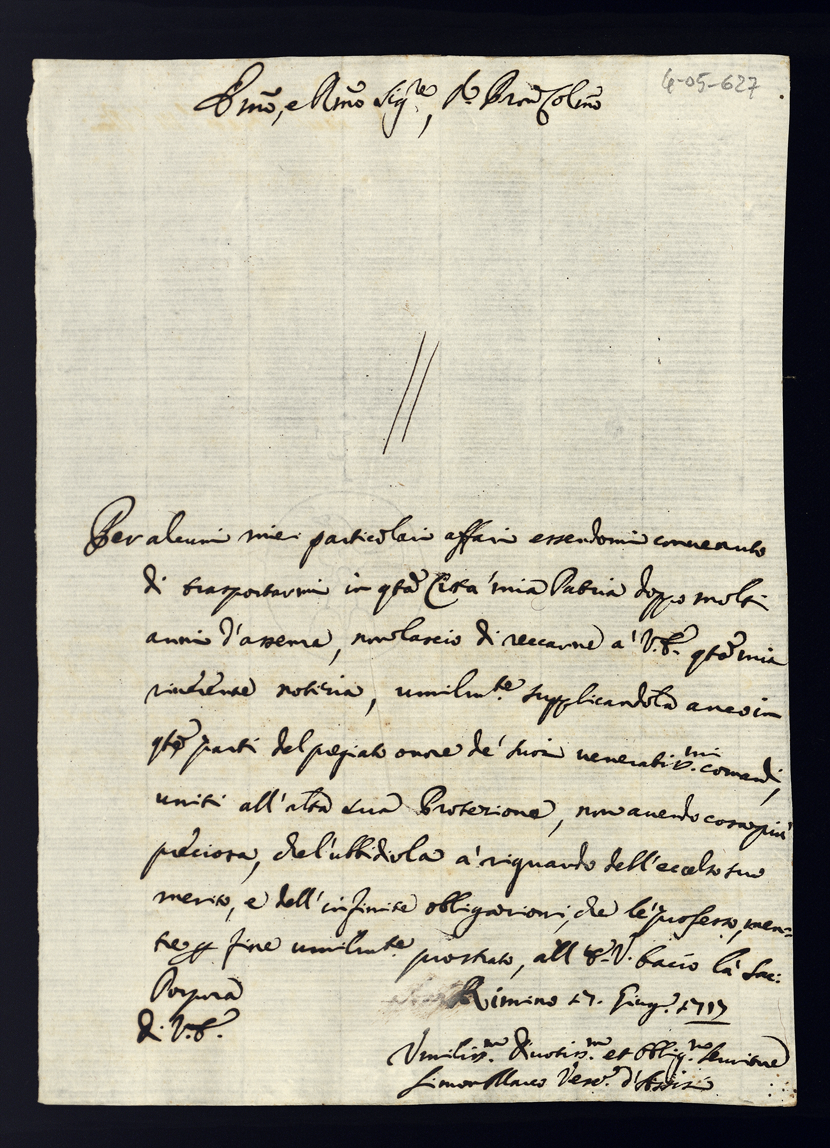 4-05-627
Em̃o, e Rm̃o Sig.re, P.ne Col.mo
//
Per alcuni miei particolari affari essendomi convenuto
di trasportarmi in q̃ta Città mia Patria doppo molti
anni d'assenza, non lascio di reccarne à V.E. q̃ta mia
riverente notizia, umilm.te supplicandola anco in
q̃te parti del pregiato onore de' suoi veneratis.mi comandi,
uniti all'alta sua Protezione, non avendo cosa più
preciosa, che l'ubbidirla à riguardo dell'eccelso suo
merito, e dell'infinite obligazioni, che le professo, men=
tre per fine umilm.te prostrato, all'E.V. bacio la Sac:
Porpora
di V.E.
Rimino 17. Giug.o 1717
Umiliss.mo divotiss.mo et obblig.mo Servitore
Simon Marco Vesc.o d'Assisi